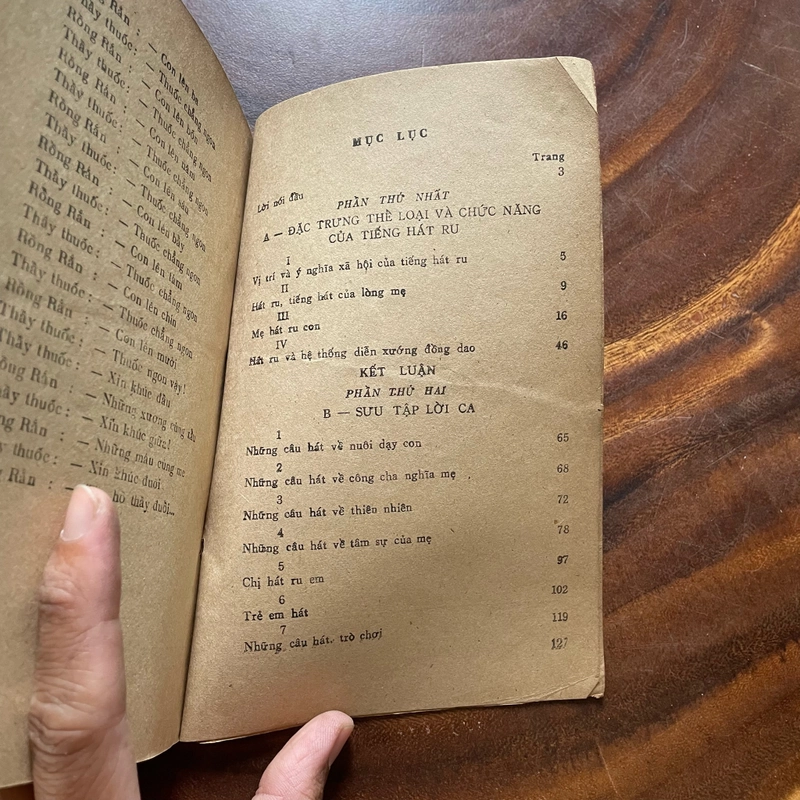 Rắn : — Con lên ba
Thầy thuốc: — Thuốc chẳng ngon
Rồng Rắn : — Con lên bốn
Thầy thuốc: — Thuốc chẳng ngon
Rồng Rắn : — Con lên năm
Thầy thuốc: — Thuốc chẳng ngon
Rồng Rắn : — Con lên sáu
Thầy thuốc: — Thuốc chẳng ngon
Rồng Rắn : — Con lên bảy
Thầy thuốc: — Thuốc chẳng ngon
Rồng Rắn : — Con lên tám
Thầy thuốc: — Thuốc chẳng ngon
Rồng Rắn : — Con lên chín
Thầy thuốc: — Thuốc chẳng ngon
Rồng Rắn : — Con lên mười
Thầy thuốc: — Thuốc ngon vậy!
— Xin khúc đầu
Rồng Rắn : — Những xương cùng xẩu
Thầy thuốc: — Xin khúc giữa!
Rồng Rắn : — Những máu cùng mẹ
Thầy thuốc: — Xin khúc đuôi
Rắn : — hò thầy đuổi...
MỤC LỤC
Trang
Lời nói đầu 3
PHẦN THỨ NHẤT
A — ĐẶC TRƯNG THỂ LOẠI VÀ CHỨC NĂNG
CỦA TIẾNG HÁT RU
I
Vị trí và ý nghĩa xã hội của tiếng hát ru 5
II
Hát ru, tiếng hát của lòng mẹ 9
III
Mẹ hát ru con 16
IV
Hát ru và hệ thống diễn xướng đồng dao 46
KẾT LUẬN
PHẦN THỨ HAI
B — SƯU TẬP LỜI CA
1
Những câu hát về nuôi dạy con 65
2
Những câu hát về công cha nghĩa mẹ 68
3
Những câu hát về thiên nhiên 72
4
Những câu hát về tâm sự của mẹ 78
5
Chị hát ru em 97
6
Trẻ em hát 102
7 119
Những câu hát. trò chơi 127